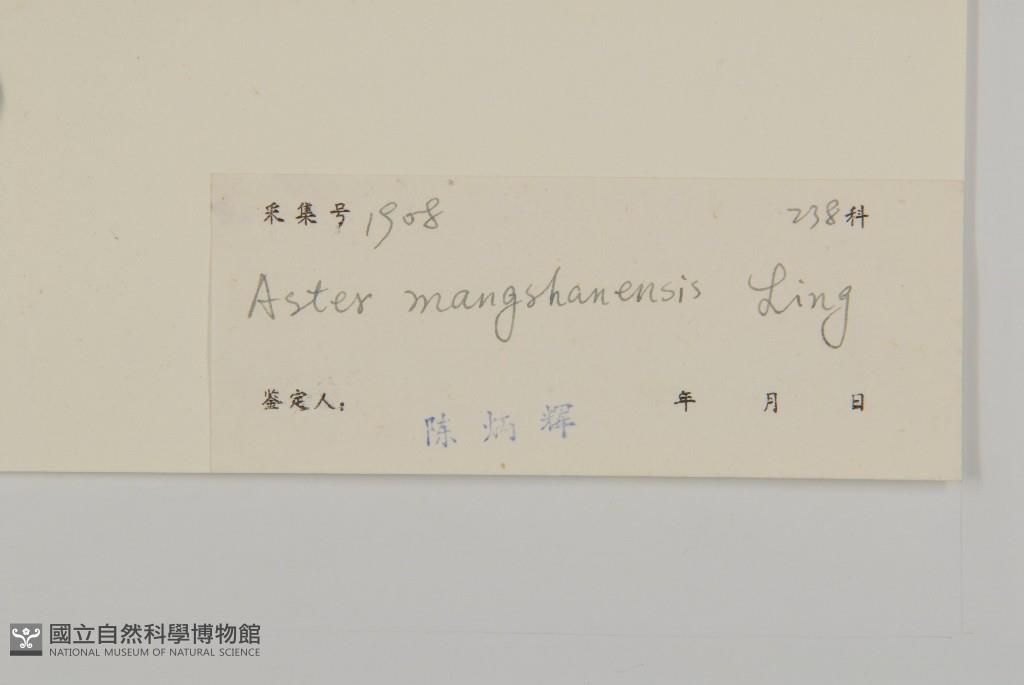 采集号 1908 238科
Aster mangshanensis Ling
鉴定人： 陈炳辉 年 月 日
國立自然科學博物館
NATIONAL MUSEUM OF NATURAL SCIENCE